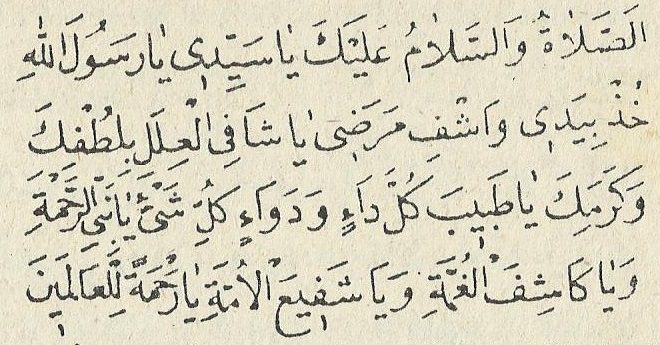 اَلصَّلَاةُ وَالسَّلَامُ عَلَيْكَ يَا سَيِّدِى يَا رَسُولَ اللهِ
خُذْ بِيَدِى وَاشْفِ مَرَضِى يَا شَافِىَ الْعِلَلِ بِلُطْفِكَ
وَكَرَمِكَ يَا طَبِيبَ كُلِّ دَاءٍ وَدَوَاءِ كُلِّ شَىْءٍ يَا نَبِىَّ الرَّحْمَةِ
وَيَا كَاشِفَ الْغُمَّةِ وَيَا شَفِيعَ الْاُمَّةِ يَا رَحْمَةً لِلْعَالَمِينَ